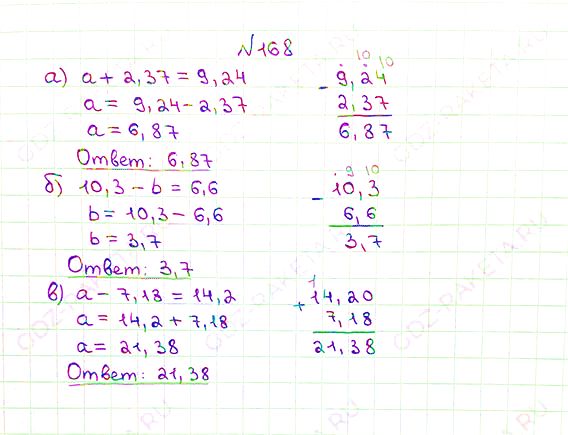 №168
а) a + 2,37 = 9,24
a = 9,24 - 2,37
a = 6,87
Ответ: 6,87
10 10
- 9,24
2,37
6,87
б) 10,3 - b = 6,6
b = 10,3 - 6,6
b = 3,7
Ответ: 3,7
9 10
- 10,3
6,6
3,7
в) a - 7,18 = 14,2
a = 14,2 + 7,18
a = 21,38
Ответ: 21,38
1
+ 14,20
7,18
21,38
GDZ-RAKETA.RU